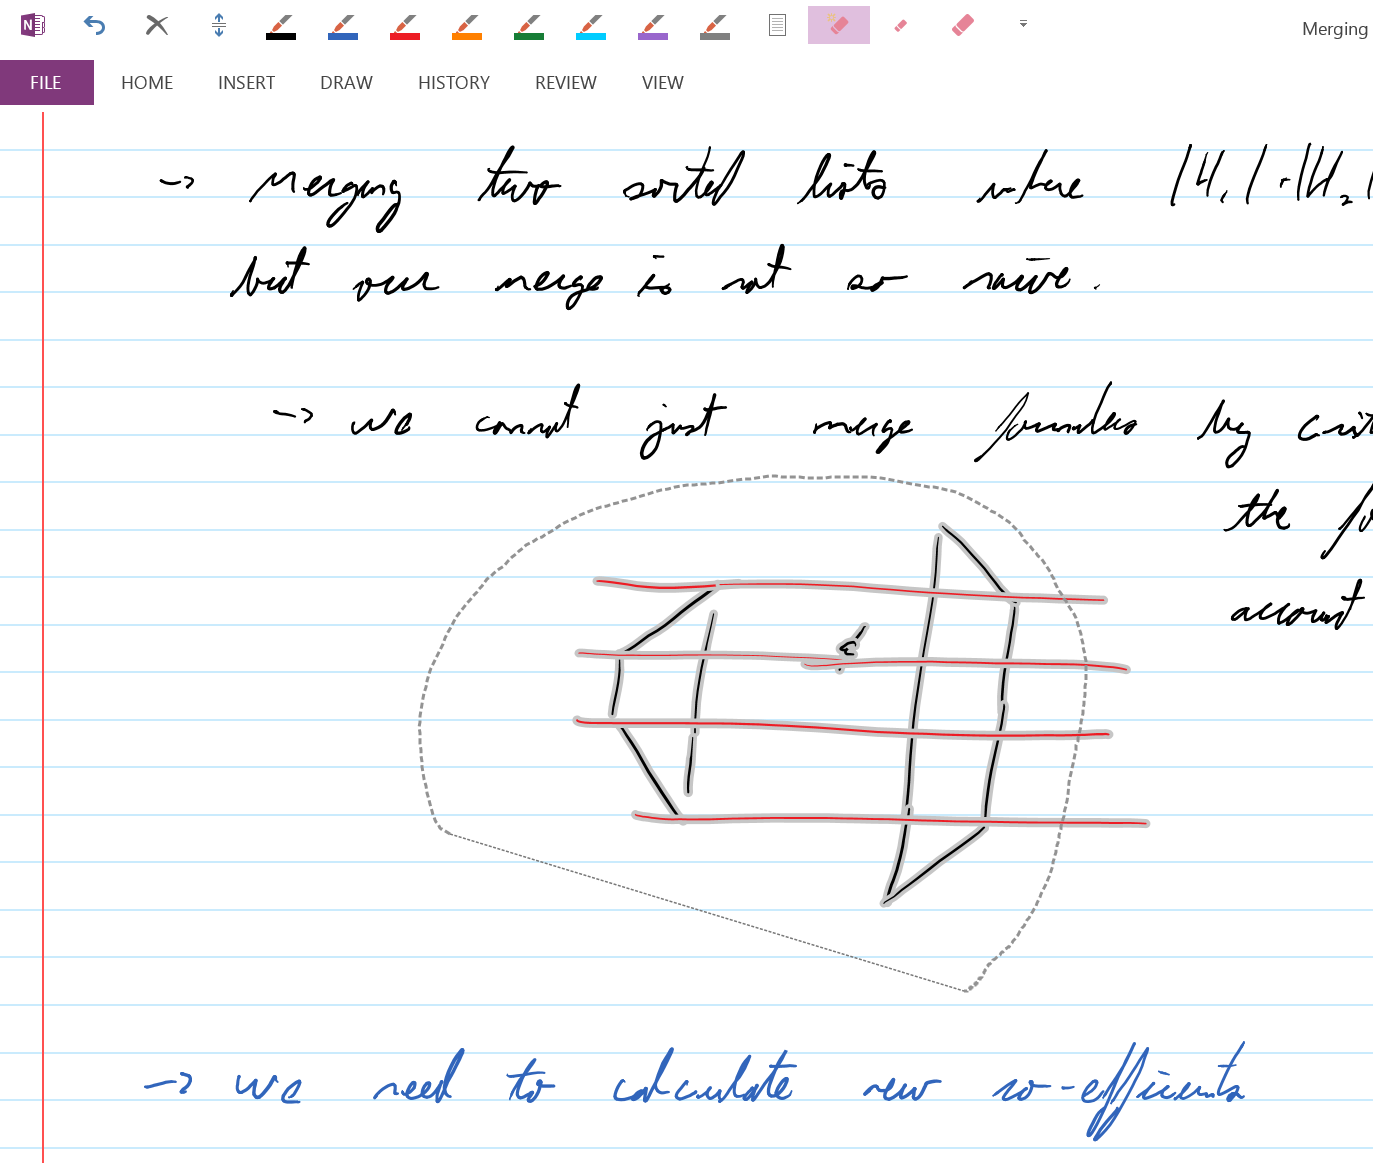 Merging
FILE HOME INSERT DRAW HISTORY REVIEW VIEW
→ Merging two sorted lists where |H₁|+|H₂|
but our merge is not so naive.
→ we cannot just merge
the
account
→ we need to calculate new co-efficients